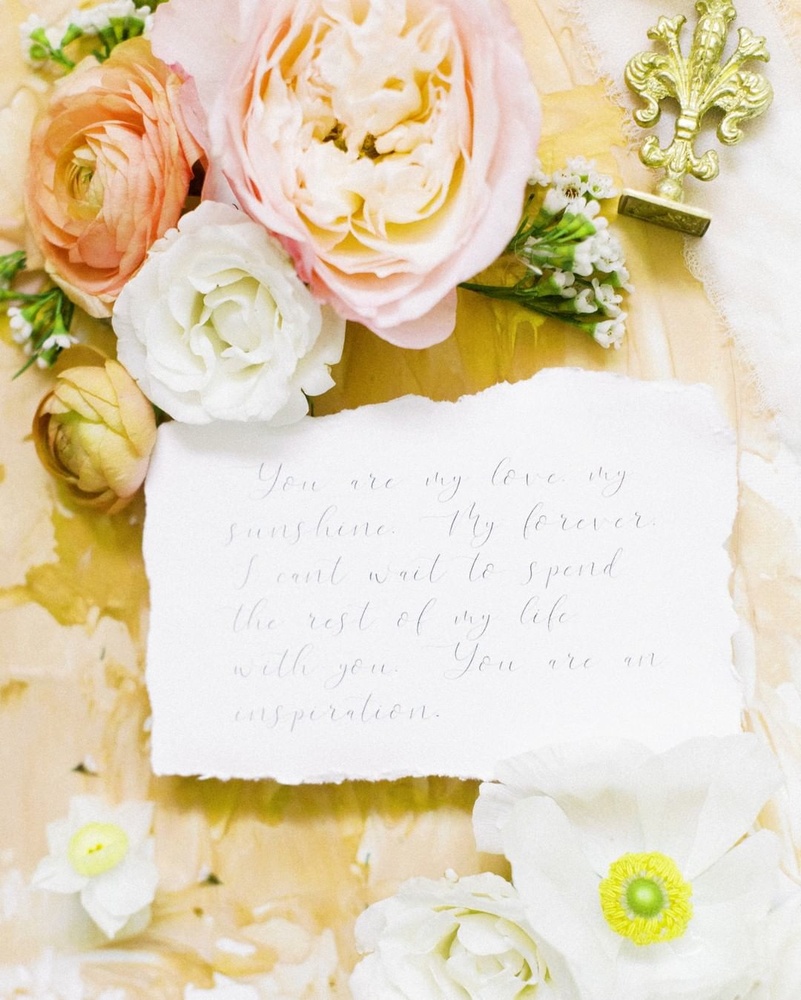 You are my love. my
sunshine. My forever.
I cant wait to spend
the rest of my life
with you. You are an
inspiration.